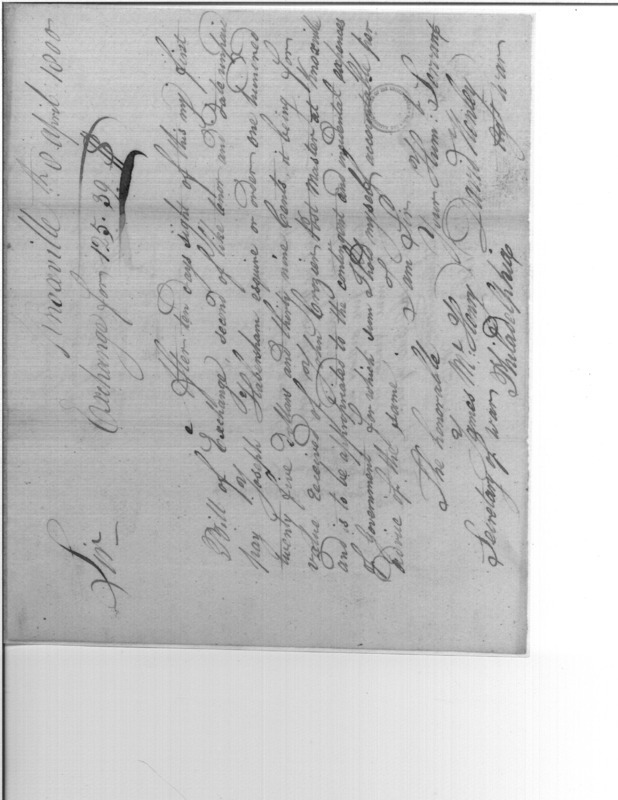 Knoxville 20 April 1800
Exchange for 125.39 $
Sir
After ten days sight of this my first
Bill of Exchange second of like tenor and date unpaid
pay Joseph Habersham esquire or order one hundred
twenty five dollars and thirty nine Cents it being for
value received of John Crozier Post Master at Knoxville
and is to be appropriated to the contingent and incidental expences
of Government for which sum I hold myself accountable per
advice of the same. I am Sir
Your Hum: Servant
The honorable
James Mc Henry
David Henley
Secretary of War
Agt War
Philadelphia